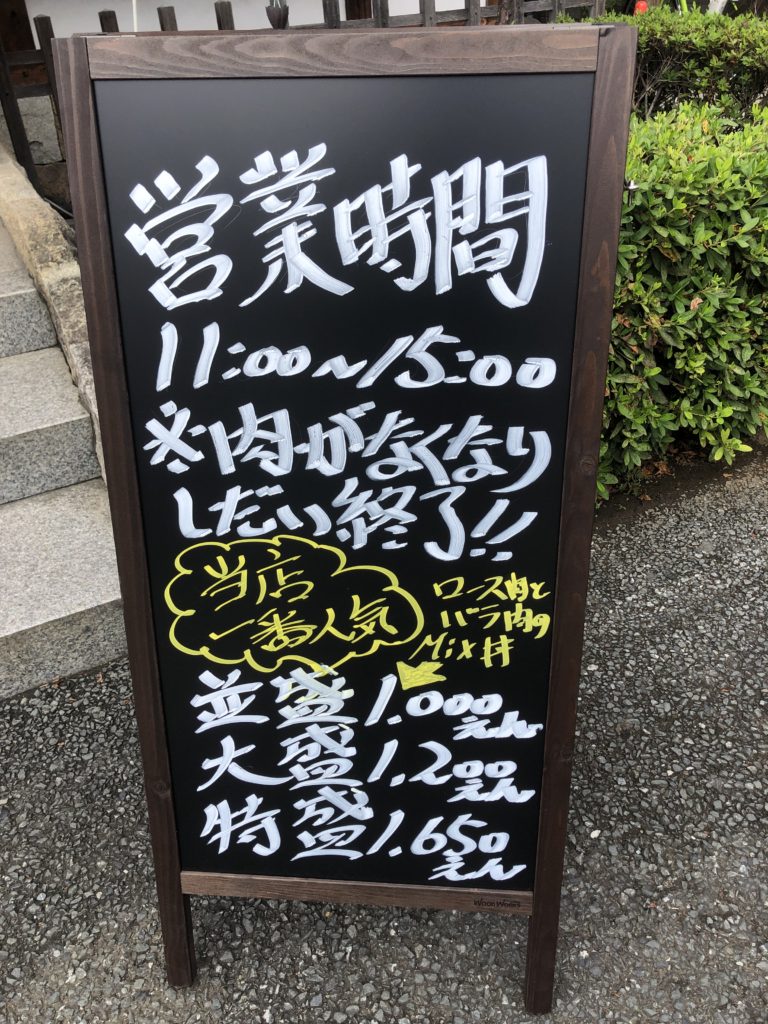 営業時間
11:00〜15:00
※肉がなくなり
しだい終了!!
当店
一番人気
ロース肉と
バラ肉の
Mix丼
並盛1.000えん
大盛1.200えん
特盛1.650えん
WOOD WORKS